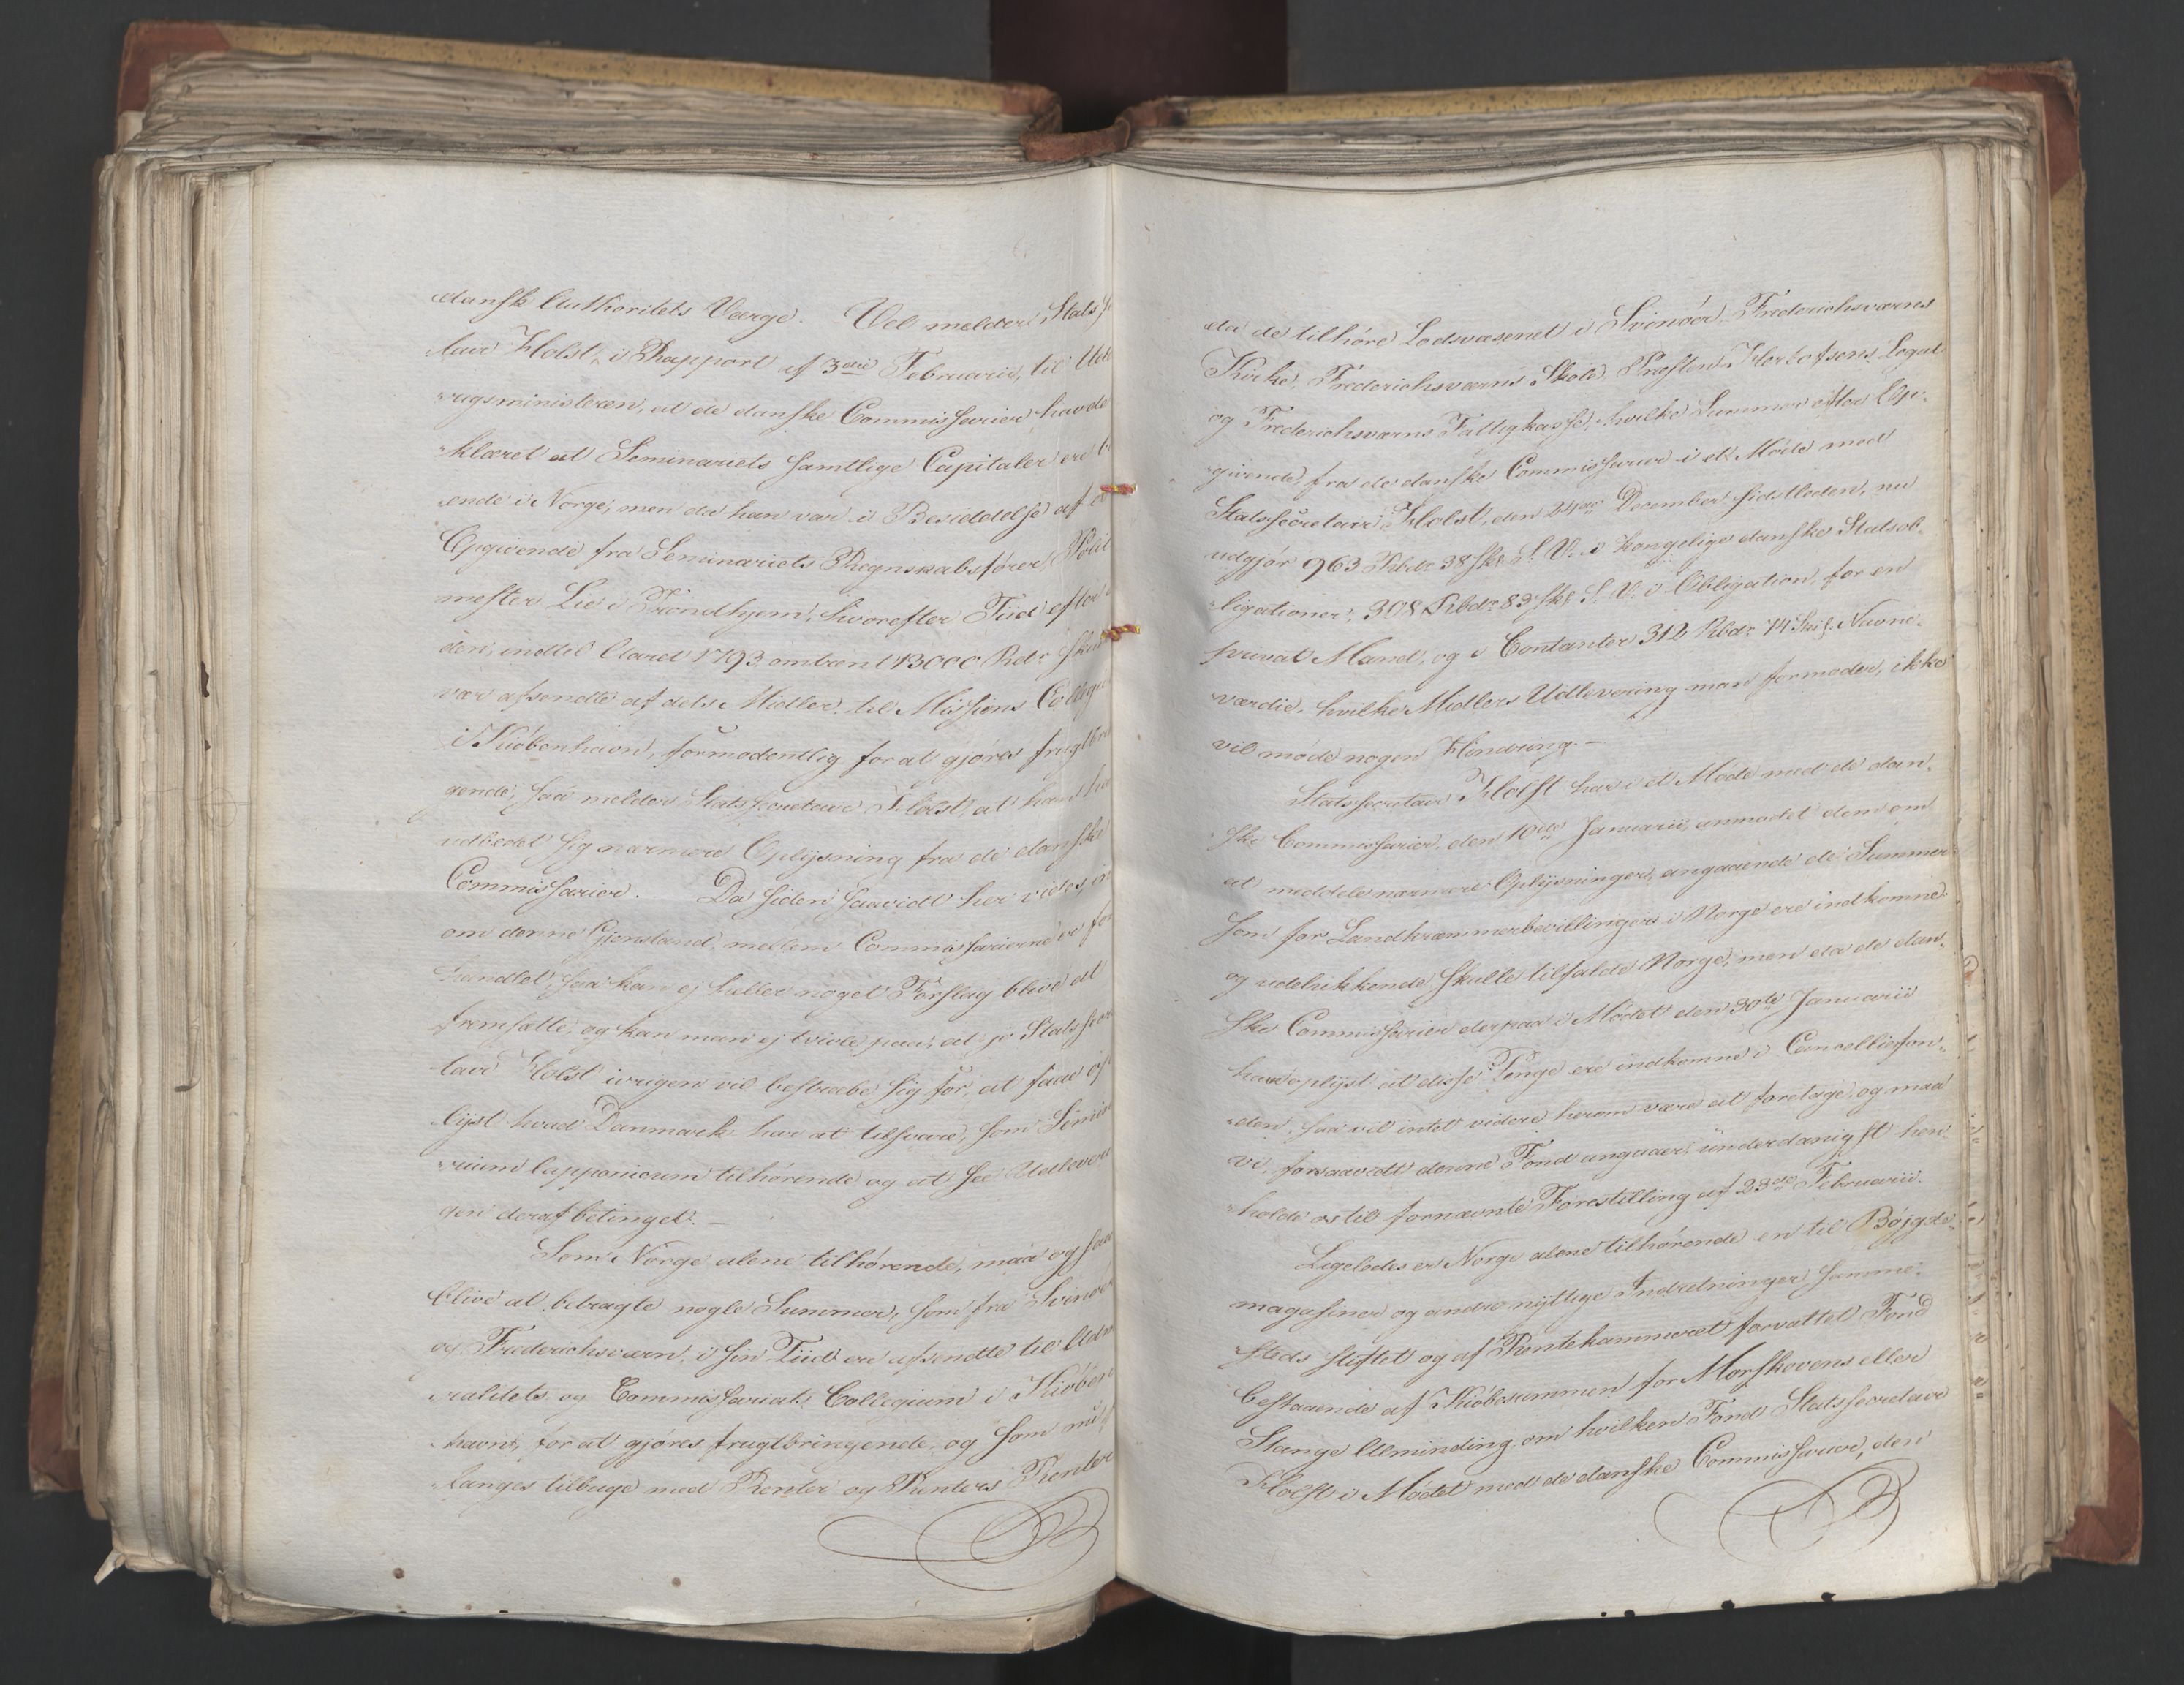 dansk Authoritets Værge. Vel melder Stats¬
tair Holst, i Rapport af 3die Februarii, til
rugsministeren, at de danske Commissærier havde
klæret at Seminariets samtlige Capitaler ere
ende i Norge; men da han var i Besiddelse af
Opgivende fra Seminariets Regnskabsfører,
mester Lie i Trondhjem, hvorefter Tiid efter
den, indtil Aaret 1793 ombent 13000 Rdr
vær afsendte af dets Midler til Missions
i Kiöbenhavn, formodentlig for at gjöres
gende, saa melder Statssecretair Holst, at han
udbedet sig nærmere Oplysning fra de danske
Commissarier. Da siden saavidt her vides,
om denne Gjenstand mellem Commissarierne er
handlet, saa kan ej heller noget Forslag blive at
fremsætte, og kan man ej tvivle paa, at jo
tair Holst ivrigen vil bestræbe sig for, at faae
lyst hvad Danmark har at tilsvare, som
rium lapponicum tilhörende og at see
gen deraf betinget. —
Som Norge alene tilhörende, maa og
blive at betragte nogle Summer, som fra
og Frederichsværn, i sin Tiid ere afsendte til
ralitets og Commissariats Collegium i
havn, for at gjöres frugtbringende, og som
langes tilbage med Renter og Renters Renter
da de tilhöre Lodsvæsenet i Svenöer, Frederichsværns
Kirke, Frederichsværns Skole, Præsten Legat
og Frederichsværns Fattigkasse, hvilke Summer efter Op¬
givende, fra de danske Commissarier i et Möde med
Statssecretair Holst, den 24de December sidstleden, nu
udgjör 963 Rbdr 38 sk S. V. i Kongelige danske Statsob¬
ligationer, 308 Rbdr 83 sk S. V. i Obligation, for en
privat Mand, og i Contanter 312 Rbdr 74 Sk Navne¬
værdie, hvilke Midlers Udlevering man formoder, ikke
vil möde nogen Hindring. —
Statssecretair Holst har i et Möde med de dan¬
ske Commissarier, den 10de Januarii, anmodet dem om
at meddele nærmere Oplysninger, angaaende de Summer
som for Landkræmmerbevillinger i Norge ere indkomne
og udelukkende skulle tilfalde Norge, men da de dan¬
ske Commissarier derpaa i Mödet den 30te Januarii
have oplyst at disse Penge ere indkomne i Cancelliefon¬
den, saa vil intet videre herom være at foretage, og maa
vi, forsaavidt denne Fond angaaer underdanigst hen¬
holde os til fornævnte Forestilling af 23de Februarii.
Ligeledes er Norge alene tilhörende en til Bøjgde¬
magasiner og andre nyttige Indretninger samme¬
steds stiftet og af Rentekammeret forvaltet Fond
bestaaende af Kiöbesummen for Morskovens eller
Stange Alminding, om hvilken Fond Statssecretair
Holst i Mödet med de danske Commissarier, den